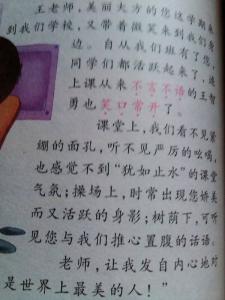 王老师，美丽大方的您这学期来
到我们学校，又带着微笑来到我们身
边。自从我们班有了您，
同学们都活跃起来了，连
上课从来不言不语的王智
勇也笑口常开了。
课堂上，我们看不见紧
绷的面孔，听不见严厉的吆喝，
也感觉不到“犹如止水”的课堂
气氛；操场上，时常出现您娇美
而又活跃的身影；树荫下，可听
见您与我们推心置腹的话语。
老师，让我发自内心地对
是世界上最美的人！”